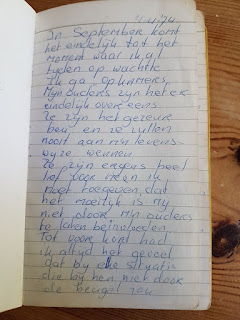 4.4.74
In September komt
het eindelijk tot het
moment waar ik al
tijden op wachtte
Ik ga op kamers
Mijn ouders zijn het er
eindelijk over eens.
Ze zijn het gezeur
beu en ze zullen
nooit aan m'n levens-
wijze wennen
Ze zijn ergens heel
lief voor me en ik
moet toegeven dat
het moeilijk is mij
niet door m'n ouders
te laten beïnvloeden
Tot voor kort had
ik altijd het gevoel
dat bij elke situatie
die bij hen niet door
de beugel zou